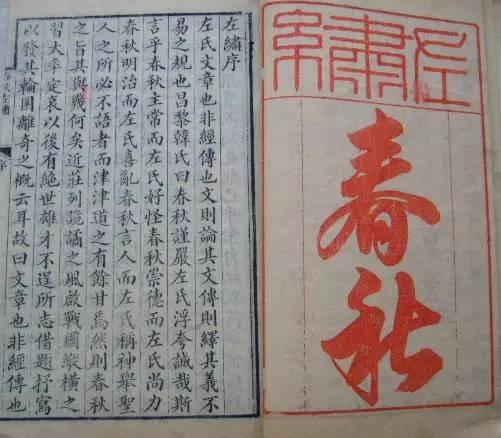 左繡
春秋
左繡序
左氏文章也非經傳也文則論其文傳則繹其義不
易之規也昌黎韓氏曰春秋謹嚴左氏浮夸誠哉斯
言乎春秋主常而左氏好怪春秋崇德而左氏尚力
春秋明治而左氏喜亂春秋言人而左氏稱神舉聖
人之所必不語者而津津道之有餘甘焉然則春秋
之旨其與幾何矣近莊列詭譎之風啟戰國縱橫之
習大率定哀以後有絕世雄才不逞所志借題抒寫
以發其輪囷離奇之概云耳故曰文章也非經傳也
春秋左繡
序